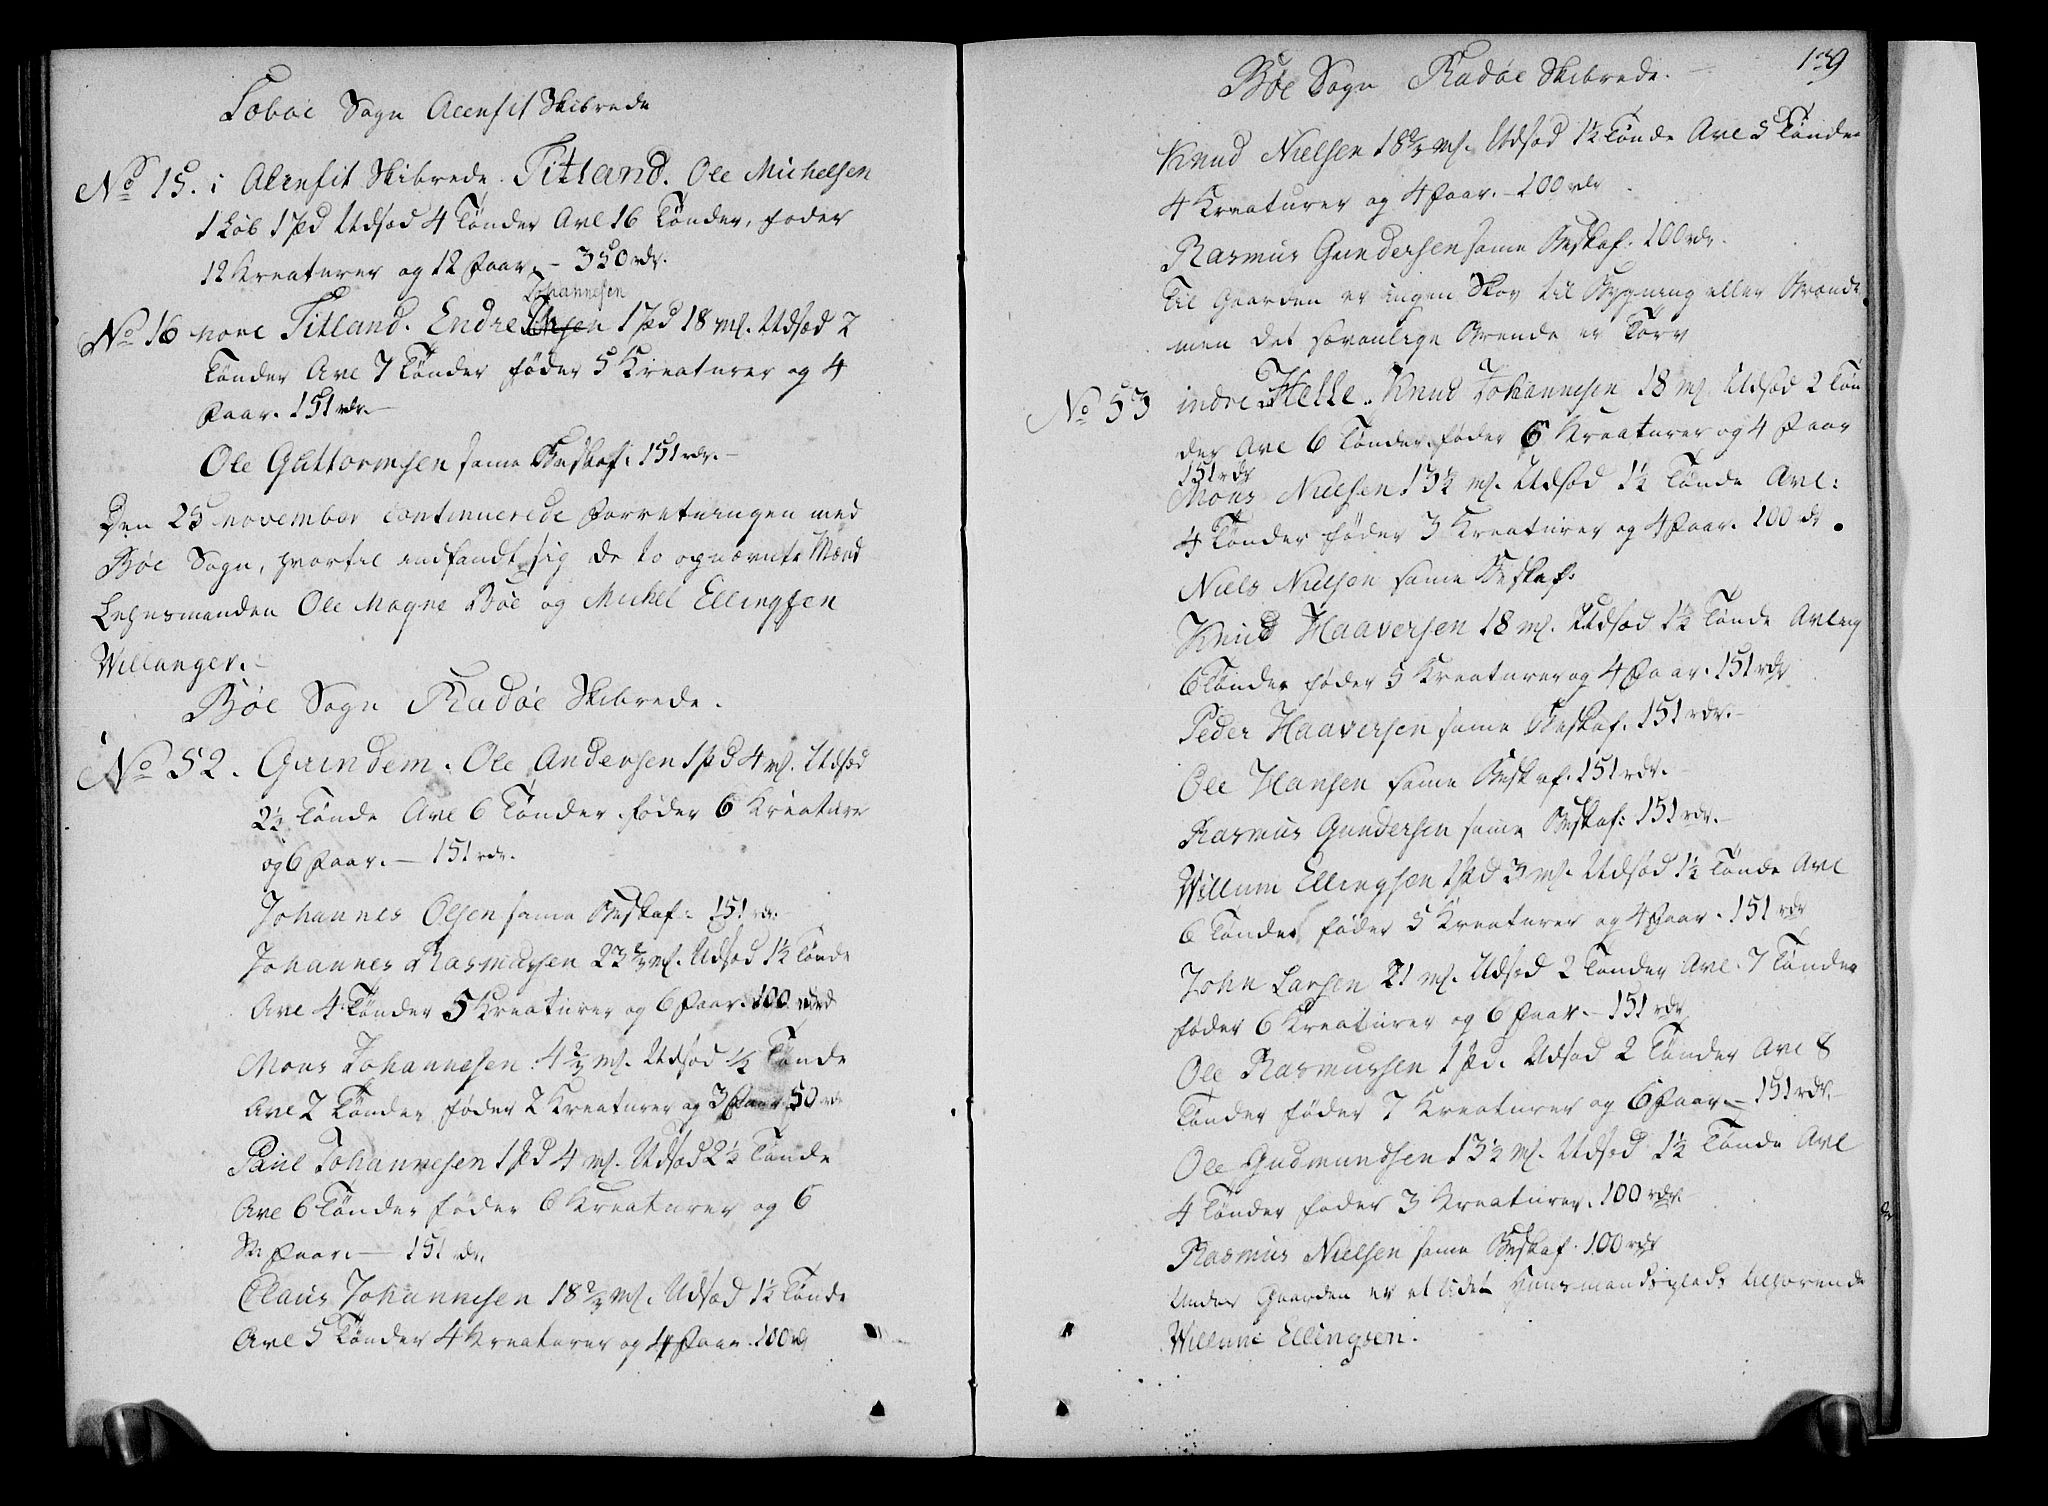 Soboe Sogn Alenfit Skibrede
No 15. i Alenfit Skibrede. Titland. Ole Michelsen
1 Løb 1 Pd Udsød 4 Tønder Avl 16 Tønder, foder
12 Kreaturer og 12 Faar. – 350 rdr.
Johannesen
No 16 nore Titland. Endre 1 Pd 18 mß. Udsød 2
Tønder Avl 7 Tønder føder 5 Kreaturer og 4
Faar. 151 rdr. –
Ole Guttormsen same Beskaf: 151 rdr. –
Den 25 november continuerede Forretningen med
Bøe Sogn, hvortil indfandt sig de to opnævnte Mænd
Lehnsmanden Ole Magne Bøe og Mickel Ellingsen
Willanger. –
Bøe Sogn Radøe Skibrede.
No 52. Grindem. Ole Andersen 1 Pd 4 mß. Udsød
2½ Tønde Avl 6 Tønder føder 6 Kreature
og 6 Faar. – 151 rdr.
Johannes Olsen same Beskaf: 151 rdr.
Johannes Rasmussen 23 2/3 mß. Udsød 1½ Tønde
Avl 4 Tønder 5 Kreaturer og 6 Faar. 100 rdr
Mons Johannesen 4 2/3 mß. Udsød ½ Tønde
Avl 2 Tønder føder 2 Kreaturer og 3 Faar 50 rdr
Paul Johannesen 1 Pd 4 mß. Udsød 2½ Tønde
Avl 6 Tønder føder 6 Kreaturer og 6
Faar. – 151 rdr
Claus Johannesen 18 2/3 mß. Udsød 1½ Tønde
Avl 5 Tønder 4 Kreaturer og 4 Faar. 100 rdr
139
Bøe Sogn Radøe Skibrede. –
Knud Nielsen 18 2/3 mß. Udsød 1½ Tønde Avl 5 Tønder
4 Kreaturer og 4 Faar. – 100 rdr.
Rasmus Gundersen same Beskaf: 100 rdr.
Til Gaarden er ingen Skov til Bygning eller Brænde
men det sævanlige Brende er Torv
No 53 indre Helle. Knud Johannesen 18 mß Udsød 2 Tøn
der Avl 6 Tønder. føder 6 Kreaturer og 4 Faar
151 rdr
Mons Nielsen 13½ mß. Udsød 1½ Tønde Avl:
4 Tønder føder 3 Kreaturer og 4 Faar. 100 rdr.
Niels Nielsen same Beskaf:
Knud Haaversen 18 mß. Udsød 1½ Tønde Avling
6 Tønder føder 5 Kreaturer og 4 Faar. 151 rdr
Peder Haaversen same Beskaf. 151 rdr. –
Ole Hansen same Beskaf. 151 rdr.
Rasmus Gundersen same Beskaf: 151 rdr. –
Willum Ellingsen 1 Pd 3 mß. Udsød 1½ Tønde Avl
6 Tønder føder 5 Kreaturer og 4 Faar. 151 rdr
John Larsen 21 mß. Udsød 2 Tønder Avl. 7 Tønder
føder 6 Kreaturer og 6 Faar. – 151 rdr
Ole Rasmussen 1 Pd. Udsød 2 Tønder Avl 8
Tønder føder 7 Kreaturer og 6 Faar. – 151 rdr.
Ole Gudmundsen 13½ mß. Udsød 1½ Tønde Avl
4 Tønder føder 3 Kreaturer. 100 rdr.
Rasmus Nielsen same Beskaf. 100 rdr
Under Gaarden er et lidet Huusmandsplads tilhørende
Willum Ellingsen.